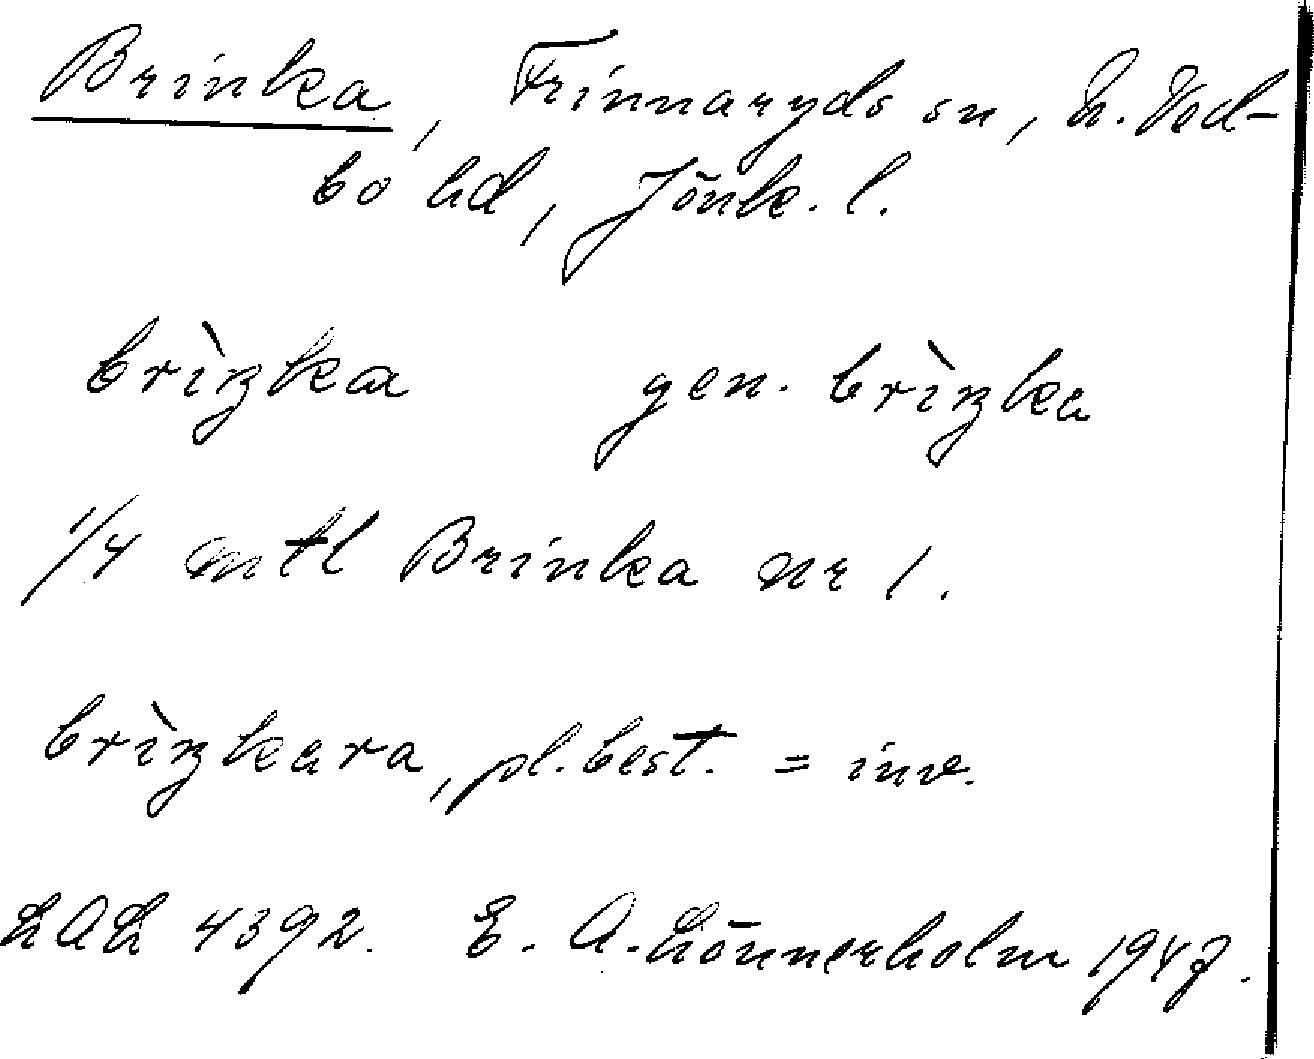 Brinka, Frinnaryds sn, N. Ved-
bo hd, Jönk. l.
brìŋka gen. brìŋka
1/4 mtl Brinka nr 1.
brìŋkara, pl. best. = inv.
LAL 4392. E. A. Lönnerholm 1947.